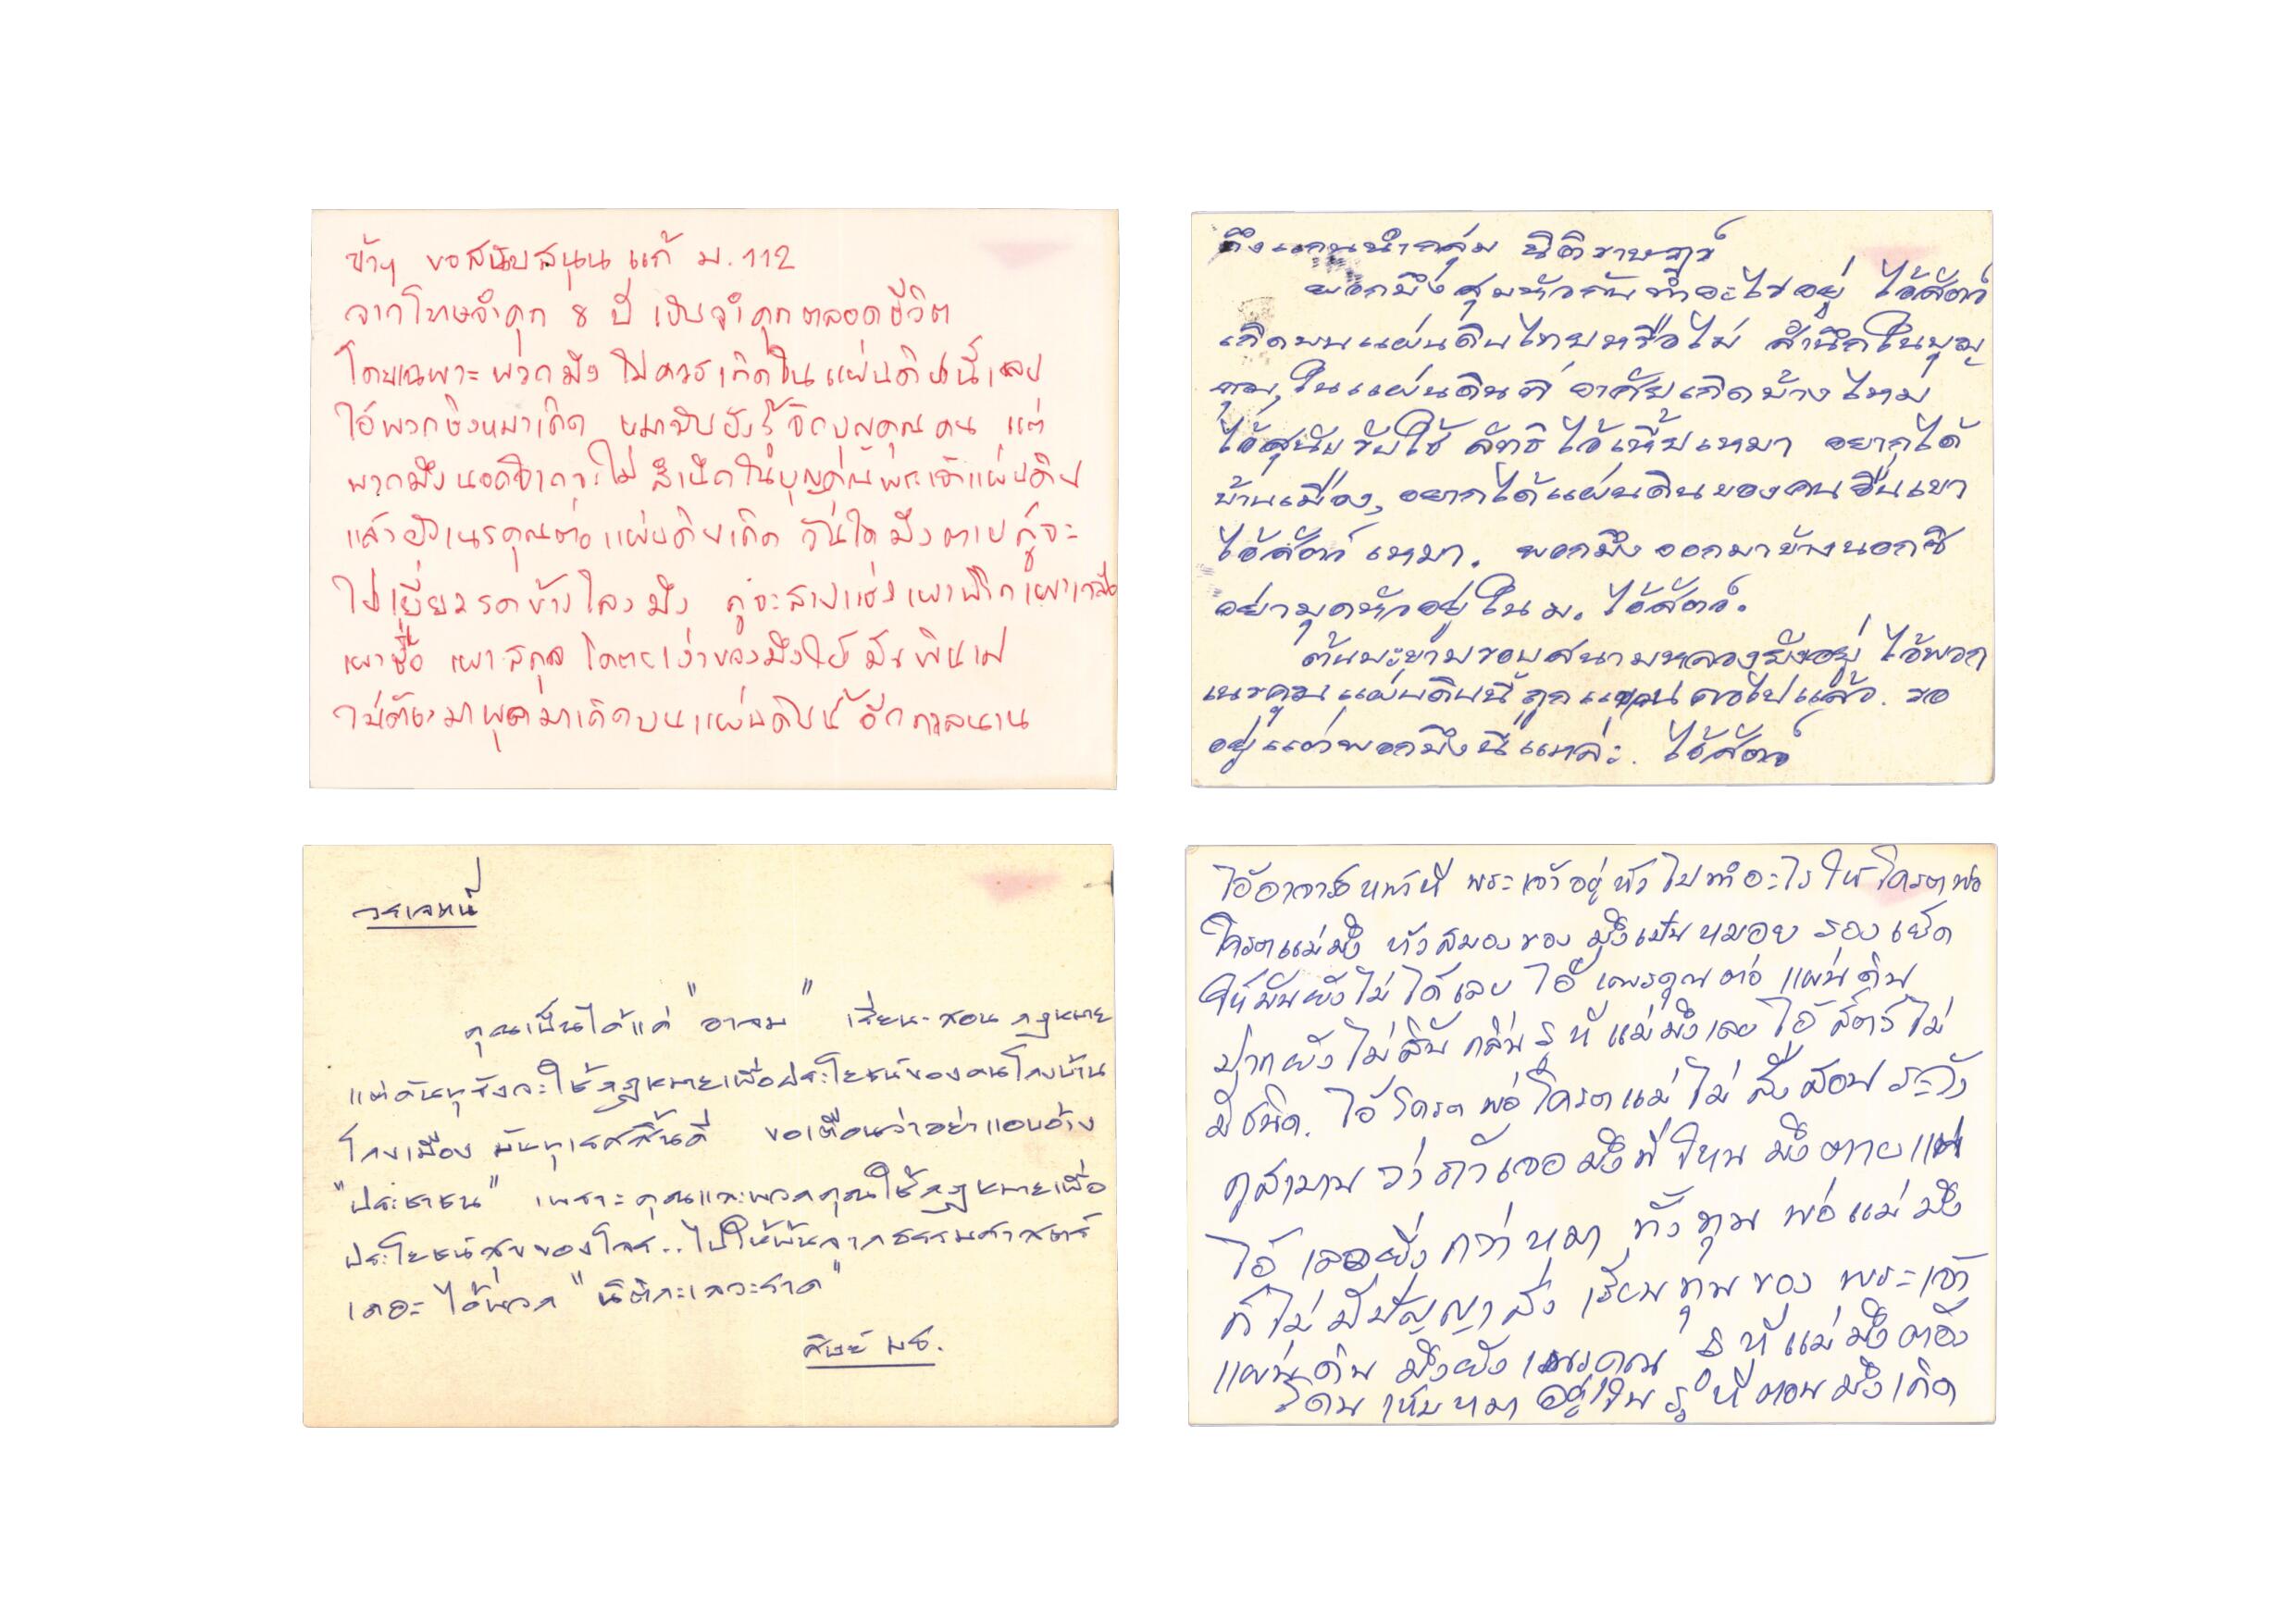 ข้าฯ ขอสนับสนุน แก้ ม.112
จากโทษจำคุก 8 ปี เป็นจำคุกตลอดชีวิต
โดยเฉพาะ พวกมึง ไม่ควรเกิดในแผ่นดินนี้เลย
ไอ้พวกชิงหมาเกิด หมามันยังรู้จักบุญคุณคน แต่
พวกมึงนอกจากจะไม่สำนึกในบุญคุณพระเจ้าแผ่นดิน
แล้วยังเนรคุณต่อแผ่นดินเกิด วันใดมึงตายกูจะ
ไปเยี่ยวรดข้างโลงมึง กูจะสาปแช่งเผาพริกเผาเกลือ
เผาชื่อ เผาสกุล โคตรเหง้าของมึงให้มันพินาศ
ไม่ต้องมาผุดมาเกิดบนแผ่นดินนี้อีกกาลนาน
ถึงแกนนำกลุ่ม นิติราษฎร์
พวกมึงสุมหัวกันทำอะไรอยู่ ไอ้สัตว์
เกิดบนแผ่นดินไทยหรือไม่ สำนึกในบุญ
คุณ, ในแผ่นดินที่อาศัยเกิดบ้างไหม
ไอ้สุนัขรับใช้ ลัทธิไอ้เหี้ยเหมา อยากได้
บ้านเมือง, อยากได้แผ่นดินของคนอื่นเขา
ไอ้สัตว์ เหมา. พวกมึงออกมาข้างนอกซิ
อย่ามุดหัวอยู่ใน ม. ไอ้สัตว์.
ต้นมะขามรอบสนามหลวงยังอยู่ ไอ้พวก
เนรคุณแผ่นดินนี้ถูกแขวนคอไปแล้ว. รอ
อยู่แต่พวกมึงนี่แหล่ะ. ไอ้สัตว์
วรเจตน์
คุณเป็นได้แค่ "อาจม" เรียน-สอน กฎหมาย
แต่ดันทุรังจะใช้กฎหมายเพื่อประโยชน์ของคนโกงบ้าน
โกงเมือง มันทุเรศสิ้นดี ขอเตือนว่าอย่าแอบอ้าง
"ประชาชน" เพราะคุณและพวกคุณใช้กฎหมายเพื่อ
ประโยชน์สุขของโจร..ไปให้พ้นจากธรรมศาสตร์
เถอะ ไอ้พวก "นิติกะเลวะราด"
ศิษย์ มธ.
ไอ้อาจารย์หน้าหี พระเจ้าอยู่หัวไปทำอะไรให้โครตพ่อ
โครตแม่มึง หัวสมองของมึงเป็นหมอยรองเย็ด
ให้มันยังไม่ได้เลย ไอ้เนรคุณต่อแผ่นดิน
ปากยังไม่สิ้นกลิ่นรูหีแม่มึงเลย ไอ้สัตว์ไม่
มีชนิด. ไอ้โครตพ่อโครตแม่ไม่สั่งสอน ระวัง
กูสาบานว่าถ้าเจอมึงที่ไหน มึงตายแน่
ไอ้เลวยิ่งกว่าหมา ทั้งทุนพ่อแม่มึง
ก็ไม่มีปัญญาส่ง เรียนทุนของพระเจ้า
แผ่นดิน มึงยังเนรคุณ รูหีแม่มึงต้อง
โดนเห็บหมา อยู่ในรูหีตอนมึงเกิด